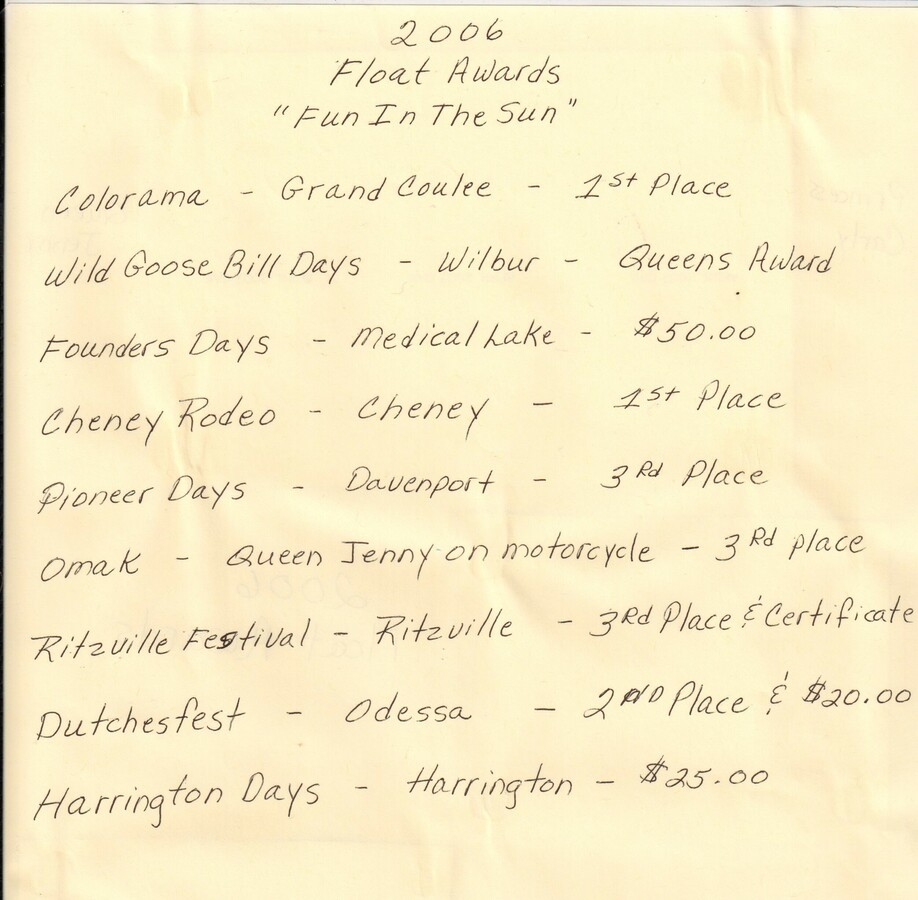 2006
Float Awards
"Fun In The Sun"
Colorama - Grand Coulee - 1st Place
Wild Goose Bill Days - Wilbur - Queens Award
Founders Days - Medical Lake - $50.00
Cheney Rodeo - Cheney - 1st Place
Pioneer Days - Davenport - 3Rd Place
Omak - Queen Jenny on motorcycle - 3Rd place
Ritzville Festival - Ritzville - 3Rd Place & Certificate
Dutchesfest - Odessa - 2ND Place & $20.00
Harrington Days - Harrington - $25.00